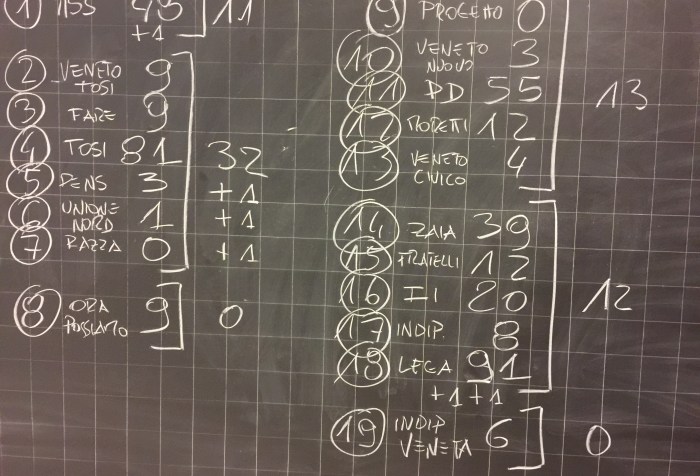 1 M5S 43 ] 11
+1
2 VENETO TOSI 9
3 FARE 9
4 TOSI 81 32
5 PENS 3 +1
6 UNIONE NORD 1 +1
7 RAZZA 0 +1
8 ORA POSSIAMO 9 ] 0
9 PROGETTO 0
10 VENETO NUOVO 3
11 PD 55 13
12 MORETTI 12
13 VENETO CIVICO 4
14 ZAIA 39
15 FRATELLI 12
16 FI 20 12
17 INDIP. 8
18 LEGA 91
+1 +1
19 INDIP VENETA 6 ] 0